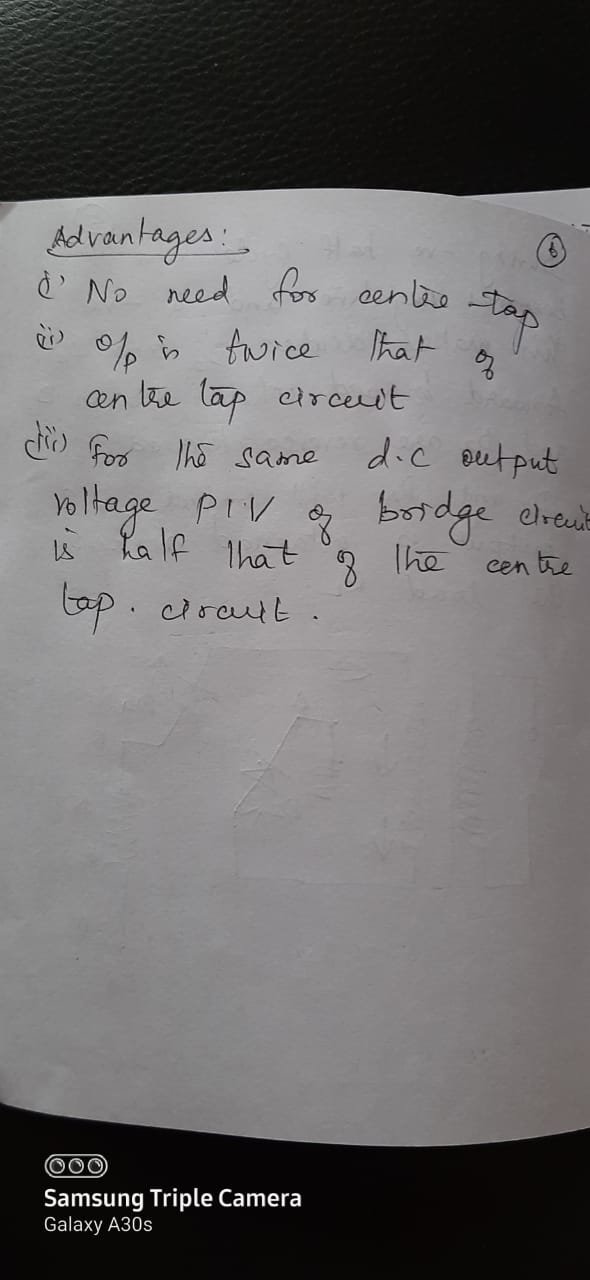 Advantages:
6
i) No need for centre tap
ii) o/p is twice that of
centre tap circuit
iii) For the same d.c output
voltage PIV of bridge circuit
is half that of the centre
tap. circuit.
Samsung Triple Camera
Galaxy A30s